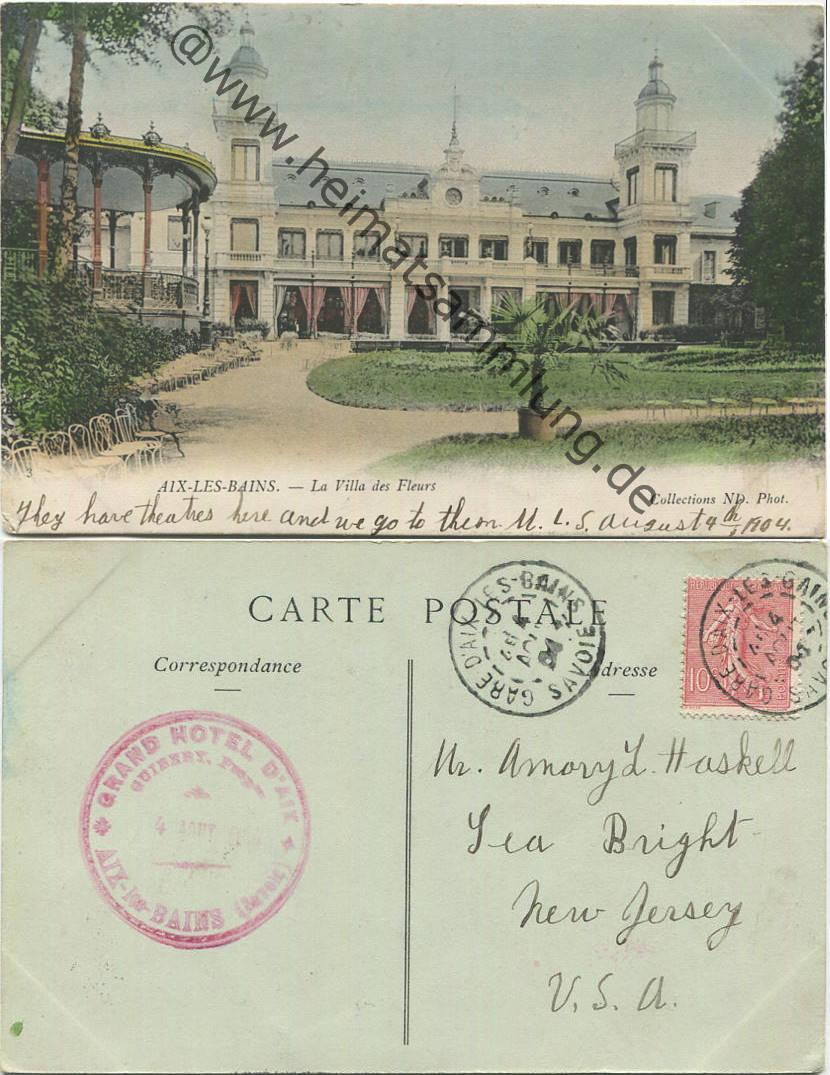 @www.heimatsammlung.de
AIX-LES-BAINS. — La Villa des Fleurs
Collections ND. Phot.
They have theatres here and we go to them M. L. S. August 4th, 1904.
CARTE POSTALE
Correspondance
Adresse
GARE D'AIX-LES-BAINS
SAVOIE
04
10c
GARE D'AIX-LES-BAINS
SAVOIE
04
GRAND HOTEL D'AIX
GUIBERT, Propre
4 AOUT
AIX-les-BAINS (Savoie)
Mr. Amory L. Haskell
Sea Bright
New Jersey
U.S.A.